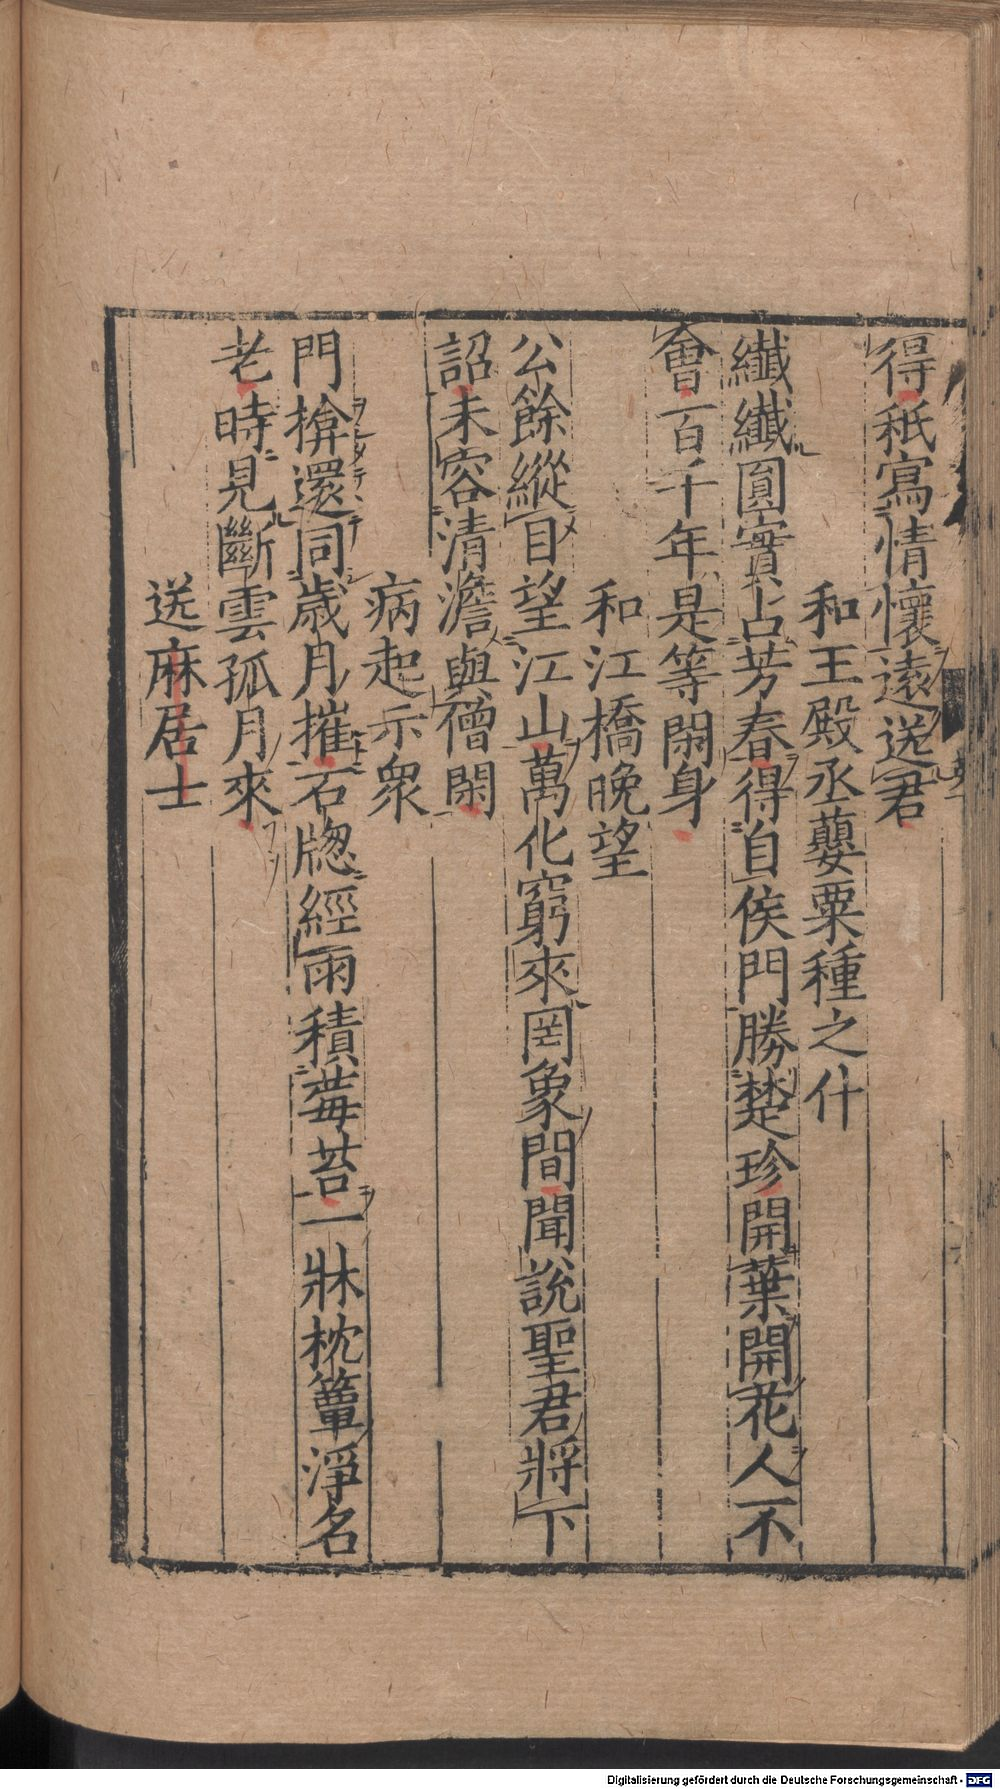 得秖寫情懷遠送君
和王殿丞甖粟種之什
纖纖圓實占芳春得自侯門勝楚珍開葉開花人不
會百千年是等閑身
和江橋晚望
公餘縱目望江山萬化窮來罔象間聞說聖君將下
詔未容清澹與僧閑
病起示衆
門揜還同歲月摧石牎經雨積莓苔一牀枕簟淨名
老時見斷雲孤月來
送麻居士
Digitalisierung gefördert durch die Deutsche Forschungsgemeinschaft - DFG